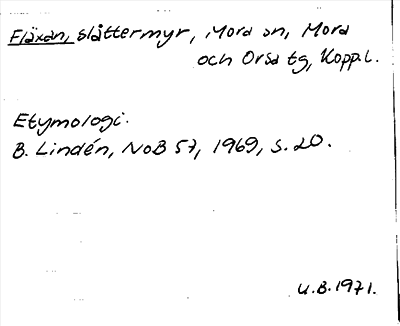 Fläxan, slåttermyr, Mora sn, Mora
och Orsa tg, Kopp.l.
Etymologi.
B. Lindén, NoB 57, 1969, s. 20.
U.B. 1971.